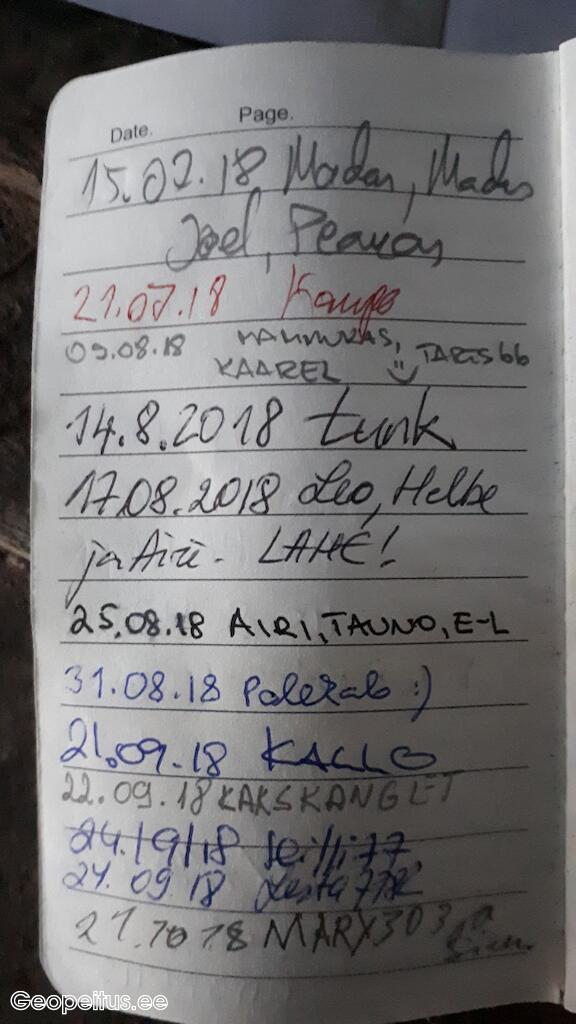 Date. Page.
15.07.18 Madis, Madis
Joel,
21.07.18 Kaupo
09.08.18
KAAREL TARIS66
14.8.2018 tunk
17.08.2018 Leo, Helbe
ja Airi. LAHE!
25.08.18 AIRI, TAUNO, E-L
31.08.18 :)
21.09.18 KALLO
22.09.18 KAKSKANGET
24/9/18
24.09.18
21.10 18 MARX303
Geopeitus.ee